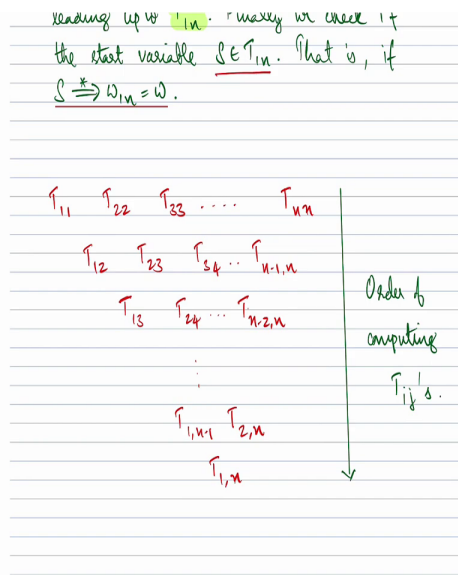 leading up to T₁ₙ. Finally we check if
the start variable S ∈ T₁ₙ. That is, if
S *⇒ w₁ₙ = w.
T₁₁ T₂₂ T₃₃ .... Tₙₙ
T₁₂ T₂₃ T₃₄ .. Tₙ₋₁,ₙ
T₁₃ T₂₄ ... Tₙ₋₂,ₙ
⋮
T₁,ₙ₋₁ T₂,ₙ
T₁,ₙ
Order of
computing
Tᵢⱼ's.